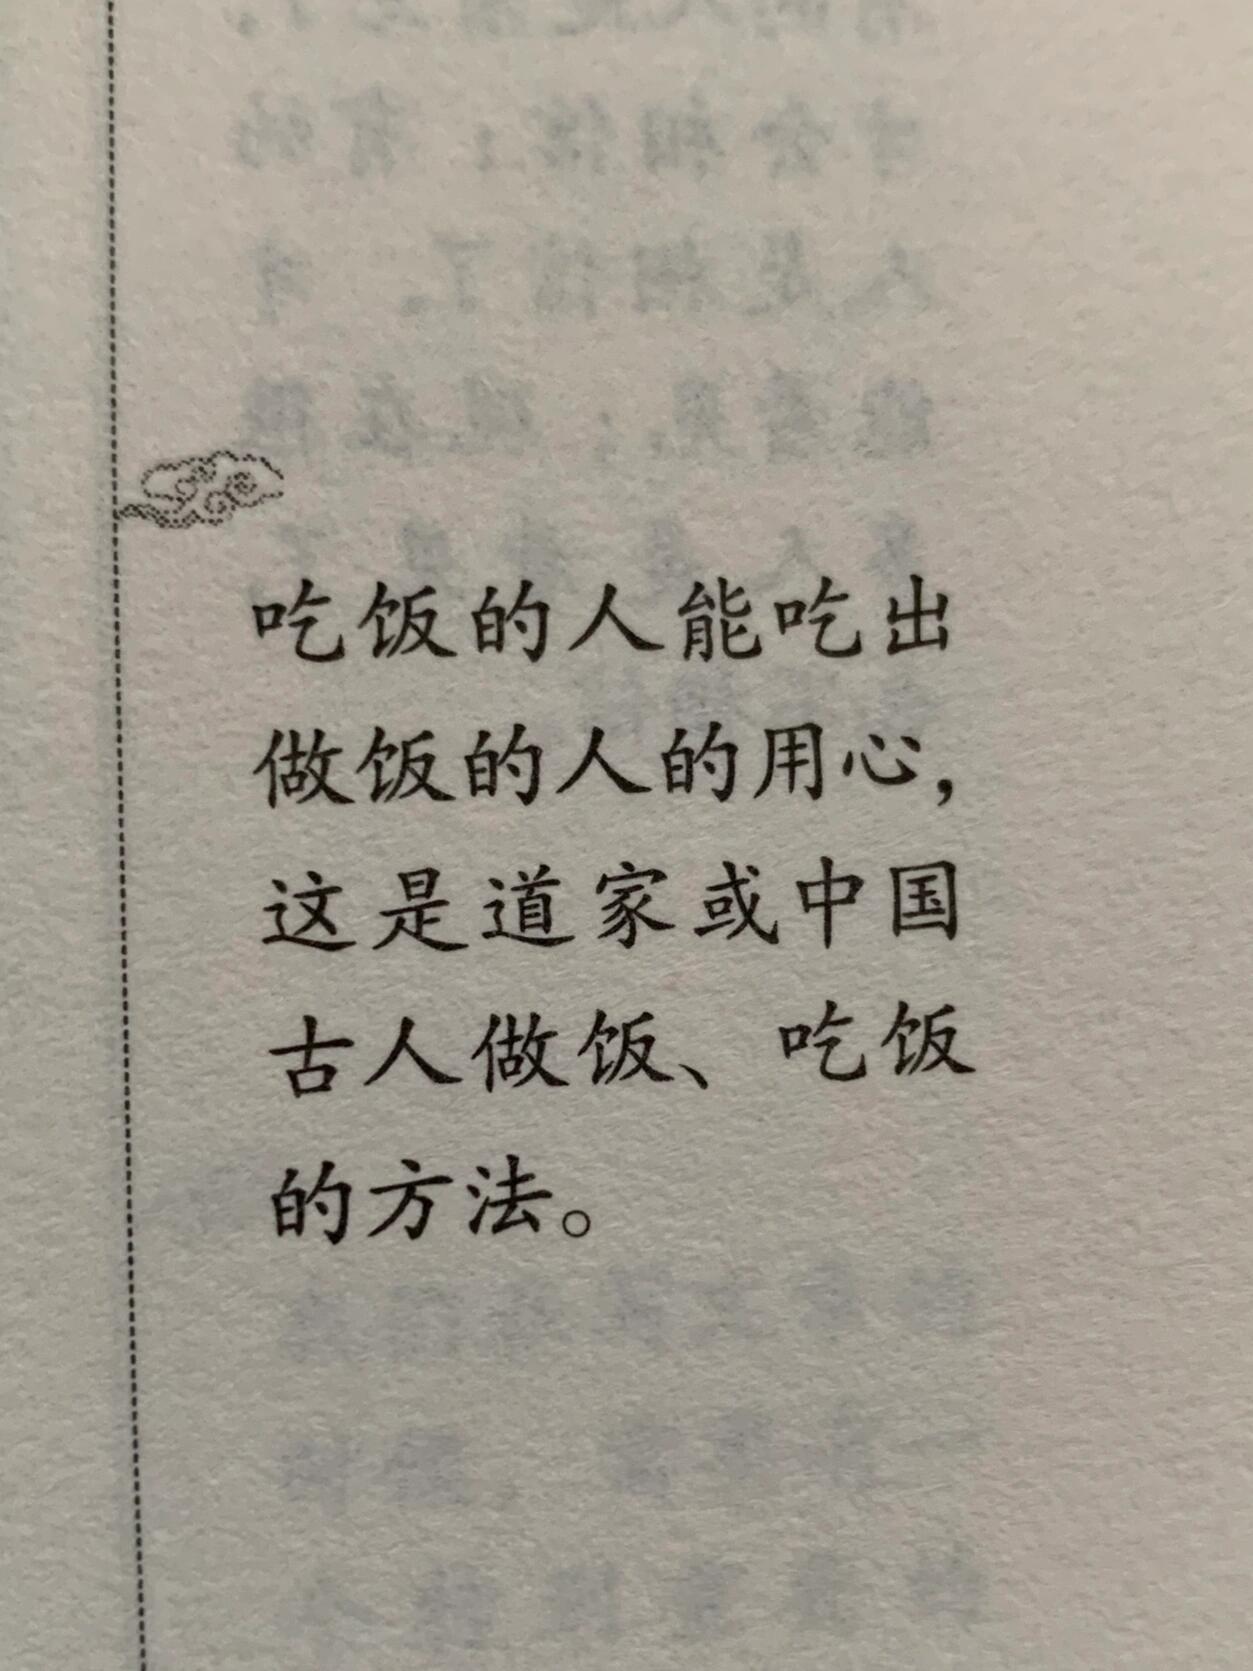 吃饭的人能吃出
做饭的人的用心，
这是道家或中国
古人做饭、吃饭
的方法。